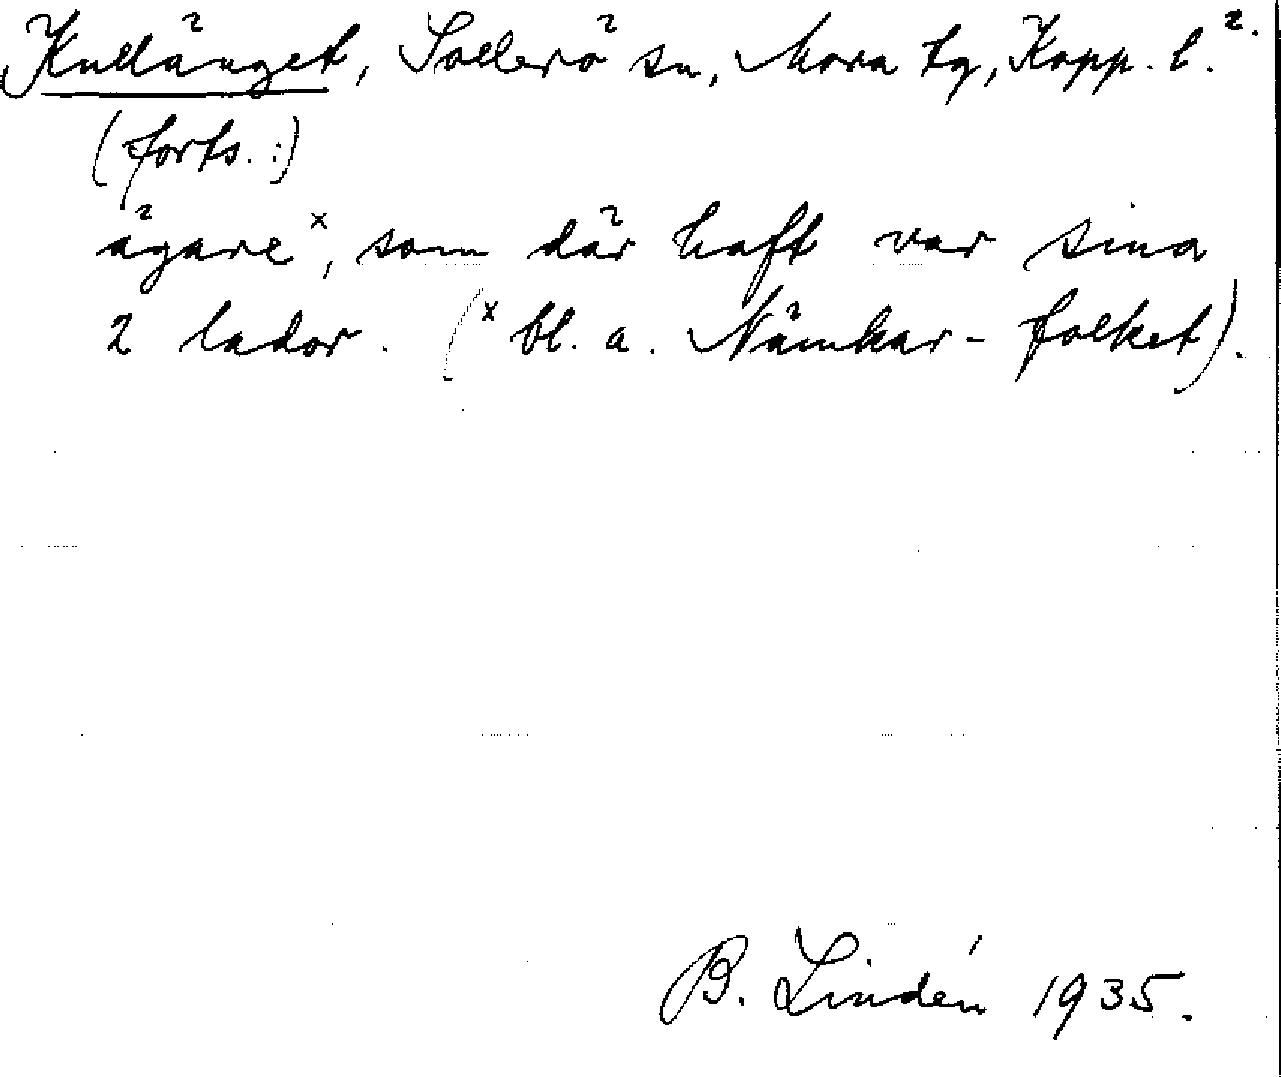 Kulländet, Sollerö sn, Mora tg, Kopp. l. 2.
(forts. :)
ägare x, som där haft var sina
2 lador. (x bl. a. Nämkar-folket).
B. Lindén 1935.